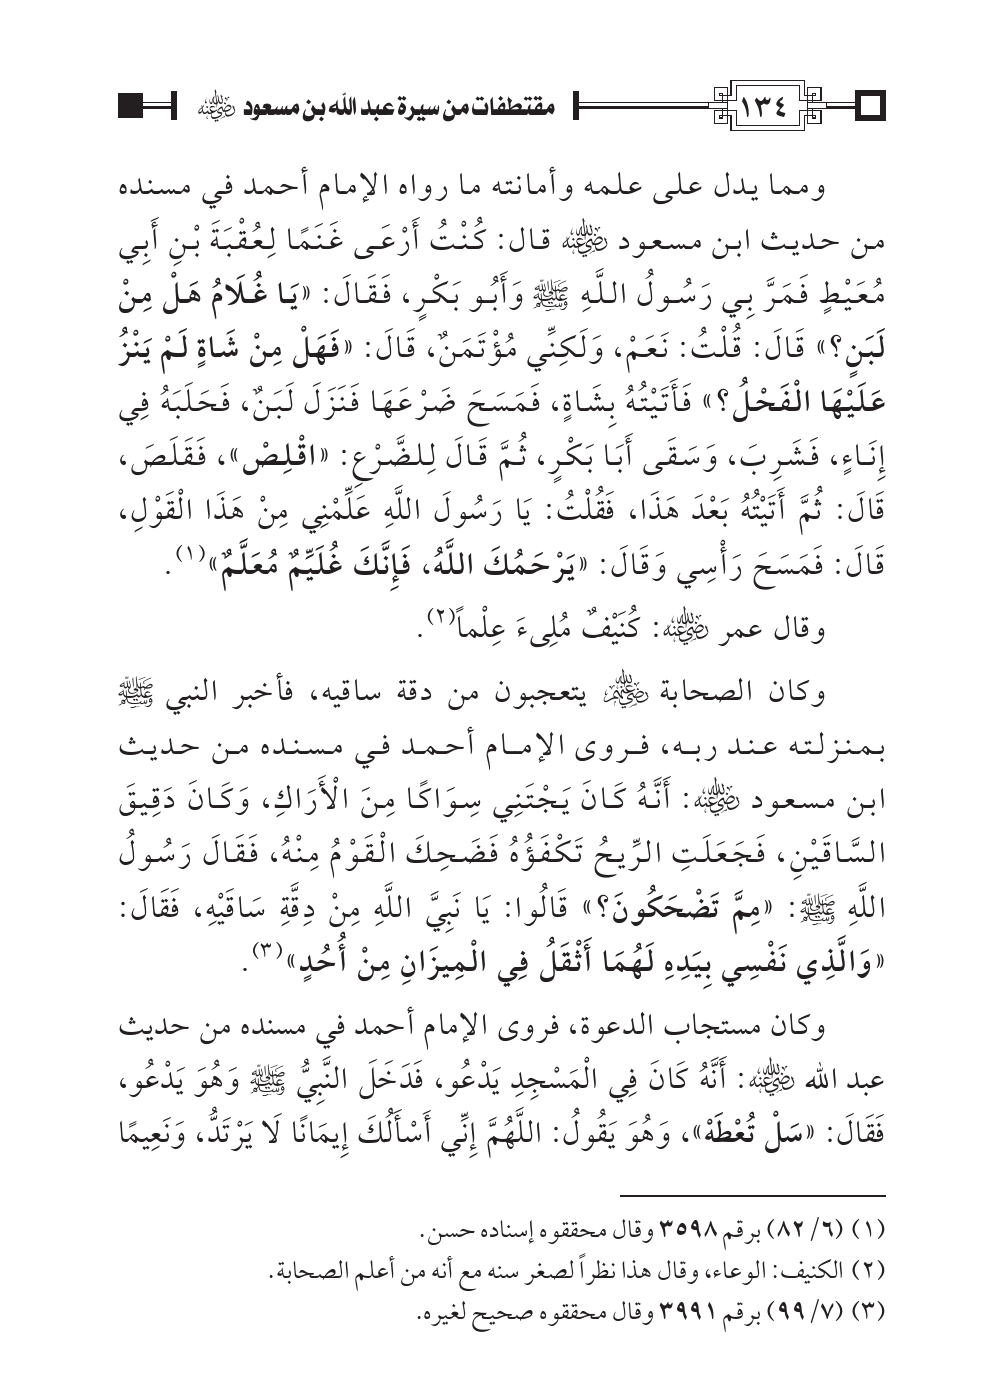 ١٣٤ مقتطفات من سيرة عبد الله بن مسعود رضي الله عنه
ومما يدل على علمه وأمانته ما رواه الإمام أحمد في مسنده
من حديث ابن مسعود رضي الله عنه قال: كُنْتُ أَرْعَى غَنَمًا لِعُقْبَةَ بْنِ أَبِي
مُعَيْطٍ فَمَرَّ بِي رَسُولُ اللَّهِ ﷺ وَأَبُو بَكْرٍ، فَقَالَ: «يَا غُلَامُ هَلْ مِنْ
لَبَنٍ؟» قَالَ: قُلْتُ: نَعَمْ، وَلَكِنِّي مُؤْتَمَنٌ، قَالَ: «فَهَلْ مِنْ شَاةٍ لَمْ يَنْزُ
عَلَيْهَا الْفَحْلُ؟» فَأَتَيْتُهُ بِشَاةٍ، فَمَسَحَ ضَرْعَهَا فَنَزَلَ لَبَنٌ، فَحَلَبَهُ فِي
إِنَاءٍ، فَشَرِبَ، وَسَقَى أَبَا بَكْرٍ، ثُمَّ قَالَ لِلضَّرْعِ: «اقْلِصْ»، فَقَلَصَ،
قَالَ: ثُمَّ أَتَيْتُهُ بَعْدَ هَذَا، فَقُلْتُ: يَا رَسُولَ اللَّهِ عَلِّمْنِي مِنْ هَذَا الْقَوْلِ،
قَالَ: فَمَسَحَ رَأْسِي وَقَالَ: «يَرْحَمُكَ اللَّهُ، فَإِنَّكَ غُلَيِّمٌ مُعَلَّمٌ»(١).
وقال عمر رضي الله عنه: كُنَيْفٌ مُلِىءَ عِلْماً(٢).
وكان الصحابة رضي الله عنهم يتعجبون من دقة ساقيه، فأخبر النبي ﷺ
بمنزلته عند ربه، فروى الإمام أحمد في مسنده من حديث
ابن مسعود رضي الله عنه: أَنَّهُ كَانَ يَجْتَنِي سِوَاكًا مِنَ الْأَرَاكِ، وَكَانَ دَقِيقَ
السَّاقَيْنِ، فَجَعَلَتِ الرِّيحُ تَكْفَؤُهُ فَضَحِكَ الْقَوْمُ مِنْهُ، فَقَالَ رَسُولُ
اللَّهِ ﷺ: «مِمَّ تَضْحَكُونَ؟» قَالُوا: يَا نَبِيَّ اللَّهِ مِنْ دِقَّةِ سَاقَيْهِ، فَقَالَ:
«وَالَّذِي نَفْسِي بِيَدِهِ لَهُمَا أَثْقَلُ فِي الْمِيزَانِ مِنْ أُحُدٍ»(٣).
وكان مستجاب الدعوة، فروى الإمام أحمد في مسنده من حديث
عبد الله رضي الله عنه: أَنَّهُ كَانَ فِي الْمَسْجِدِ يَدْعُو، فَدَخَلَ النَّبِيُّ ﷺ وَهُوَ يَدْعُو،
فَقَالَ: «سَلْ تُعْطَهْ»، وَهُوَ يَقُولُ: اللَّهُمَّ إِنِّي أَسْأَلُكَ إِيمَانًا لَا يَرْتَدُّ، وَنَعِيمًا
(١) (٦/ ٨٢) برقم ٣٥٩٨ وقال محققوه إسناده حسن.
(٢) الكنيف: الوعاء، وقال هذا نظراً لصغر سنه مع أنه من أعلم الصحابة.
(٣) (٧/ ٩٩) برقم ٣٩٩١ وقال محققوه صحيح لغيره.